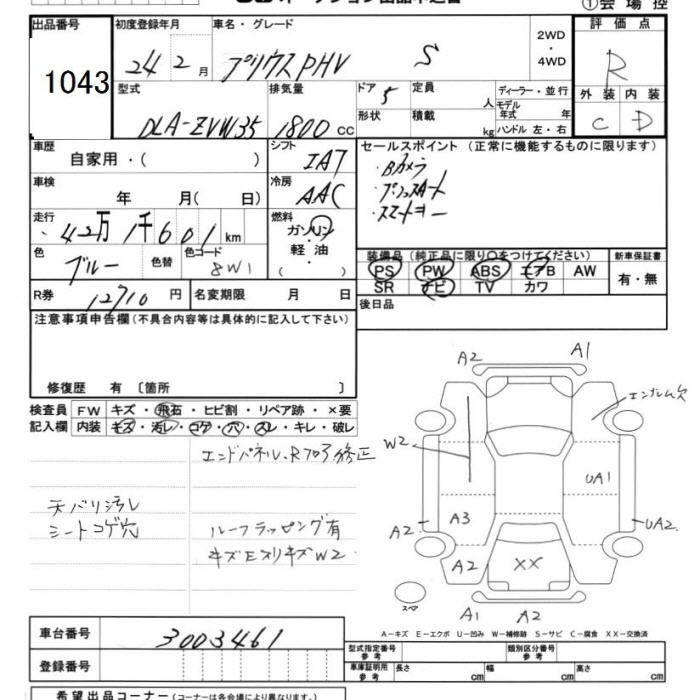 オークション出品申込書
①会場控
出品番号 初度登録年月 車名・グレード 評価点
1043 24 2月 プリウスPHV S 2WD・4WD R
型式 排気量 ドア 定員 ディーラー・並行
DLA-ZVW35 1800 cc 5 人 モデル年式 年
形状 積載 kg ハンドル 左・右
外装 内装
C D
車歴 シフト セールスポイント (正常に機能するものに限ります)
自家用・( ) IAT ・Bカメラ
車検 冷房 ・プッシュスタート
年 月( 日) AAC ・スマートキー
走行 燃料
42万1千601km ガソリン
軽・油
( )
色 色替 色コード
ブルー 8W1
装備品 (純正品に限り○をつけてください) 新車保証書
PS PW ABS エアB AW 有・無
SR ナビ TV カワ
R券 12710円 名変期限 月 日 後日品
注意事項申告欄(不具合内容等は具体的に記入して下さい)
修復歴 有 〔箇所 〕
検査員 FW キズ・飛石・ヒビ割・リペア跡・×要
記入欄 内装 キズ・汚レ・コゲ・穴・スレ・キレ・破レ
エンドパネル、Rフロア修正
天バリ汚レ
シートコゲ穴
ルーフラッピング有
キズEスリキズW2
A2 A1
エンブレム欠
W2
UA1
A3
A2 UA2
A2 XX
スペア
A1 A2
A－キズ E－エクボ U－凹み W－補修跡 S－サビ C－腐食 XX－交換済
車台番号 3003461
登録番号
型式指定番号 参考 類別区分番号 参考
車庫証明用 参考 長さ cm 幅 cm 高さ cm
希望出品コーナー (コーナーは各会場により異なります。)